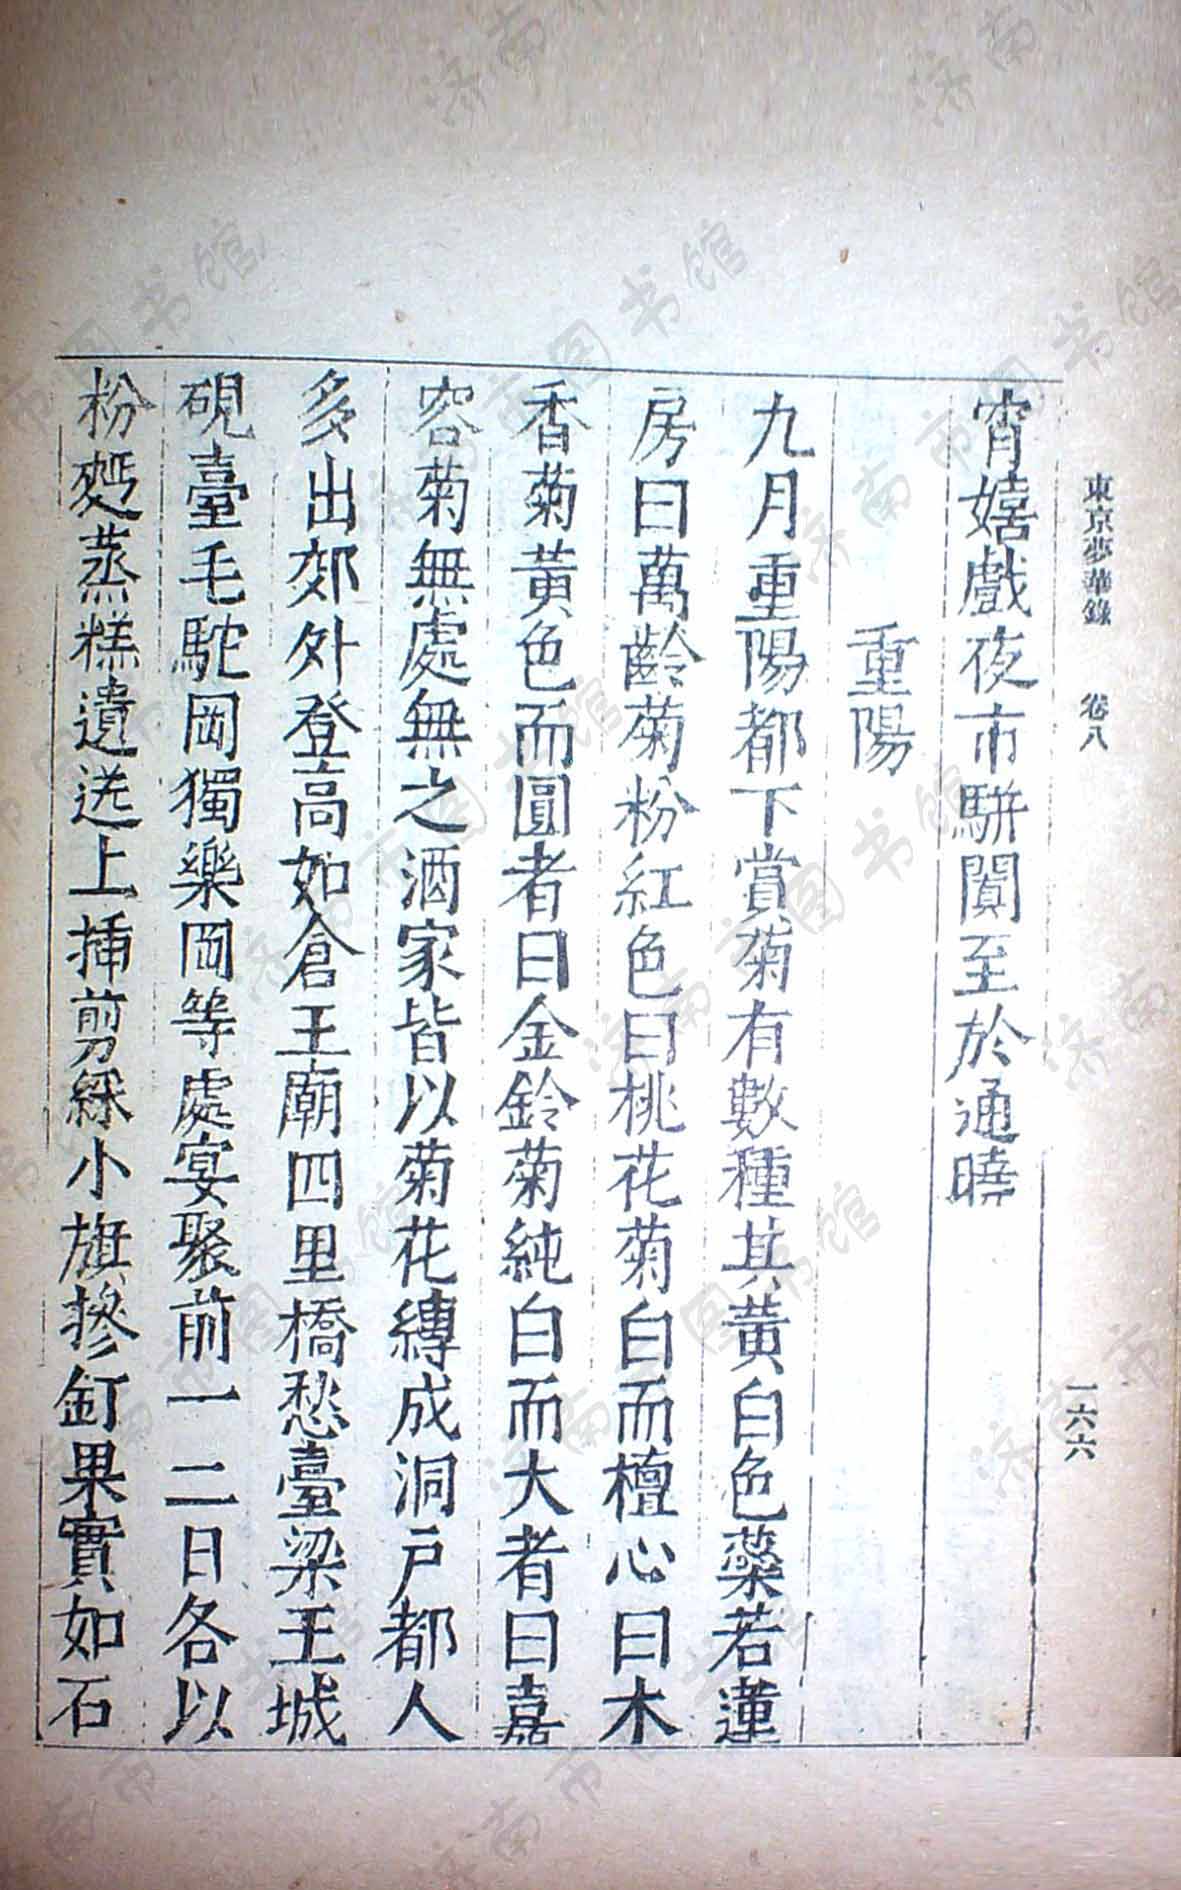 東京夢華錄 卷八 一六六
宵嬉戲夜市駢闐至於通曉
重陽
九月重陽都下賞菊有數種其黃白色蘂若蓮
房曰萬齡菊粉紅色曰桃花菊白而檀心曰木
香菊黃色而圓者曰金鈴菊純白而大者曰嘉
容菊無處無之酒家皆以菊花縛成洞戶都人
多出郊外登高如倉王廟四里橋愁臺梁王城
硯臺毛駝岡獨樂岡等處宴聚前一二日各以
粉麪蒸糕遺送上插剪綵小旗摻飣果實如石
济南市图书馆